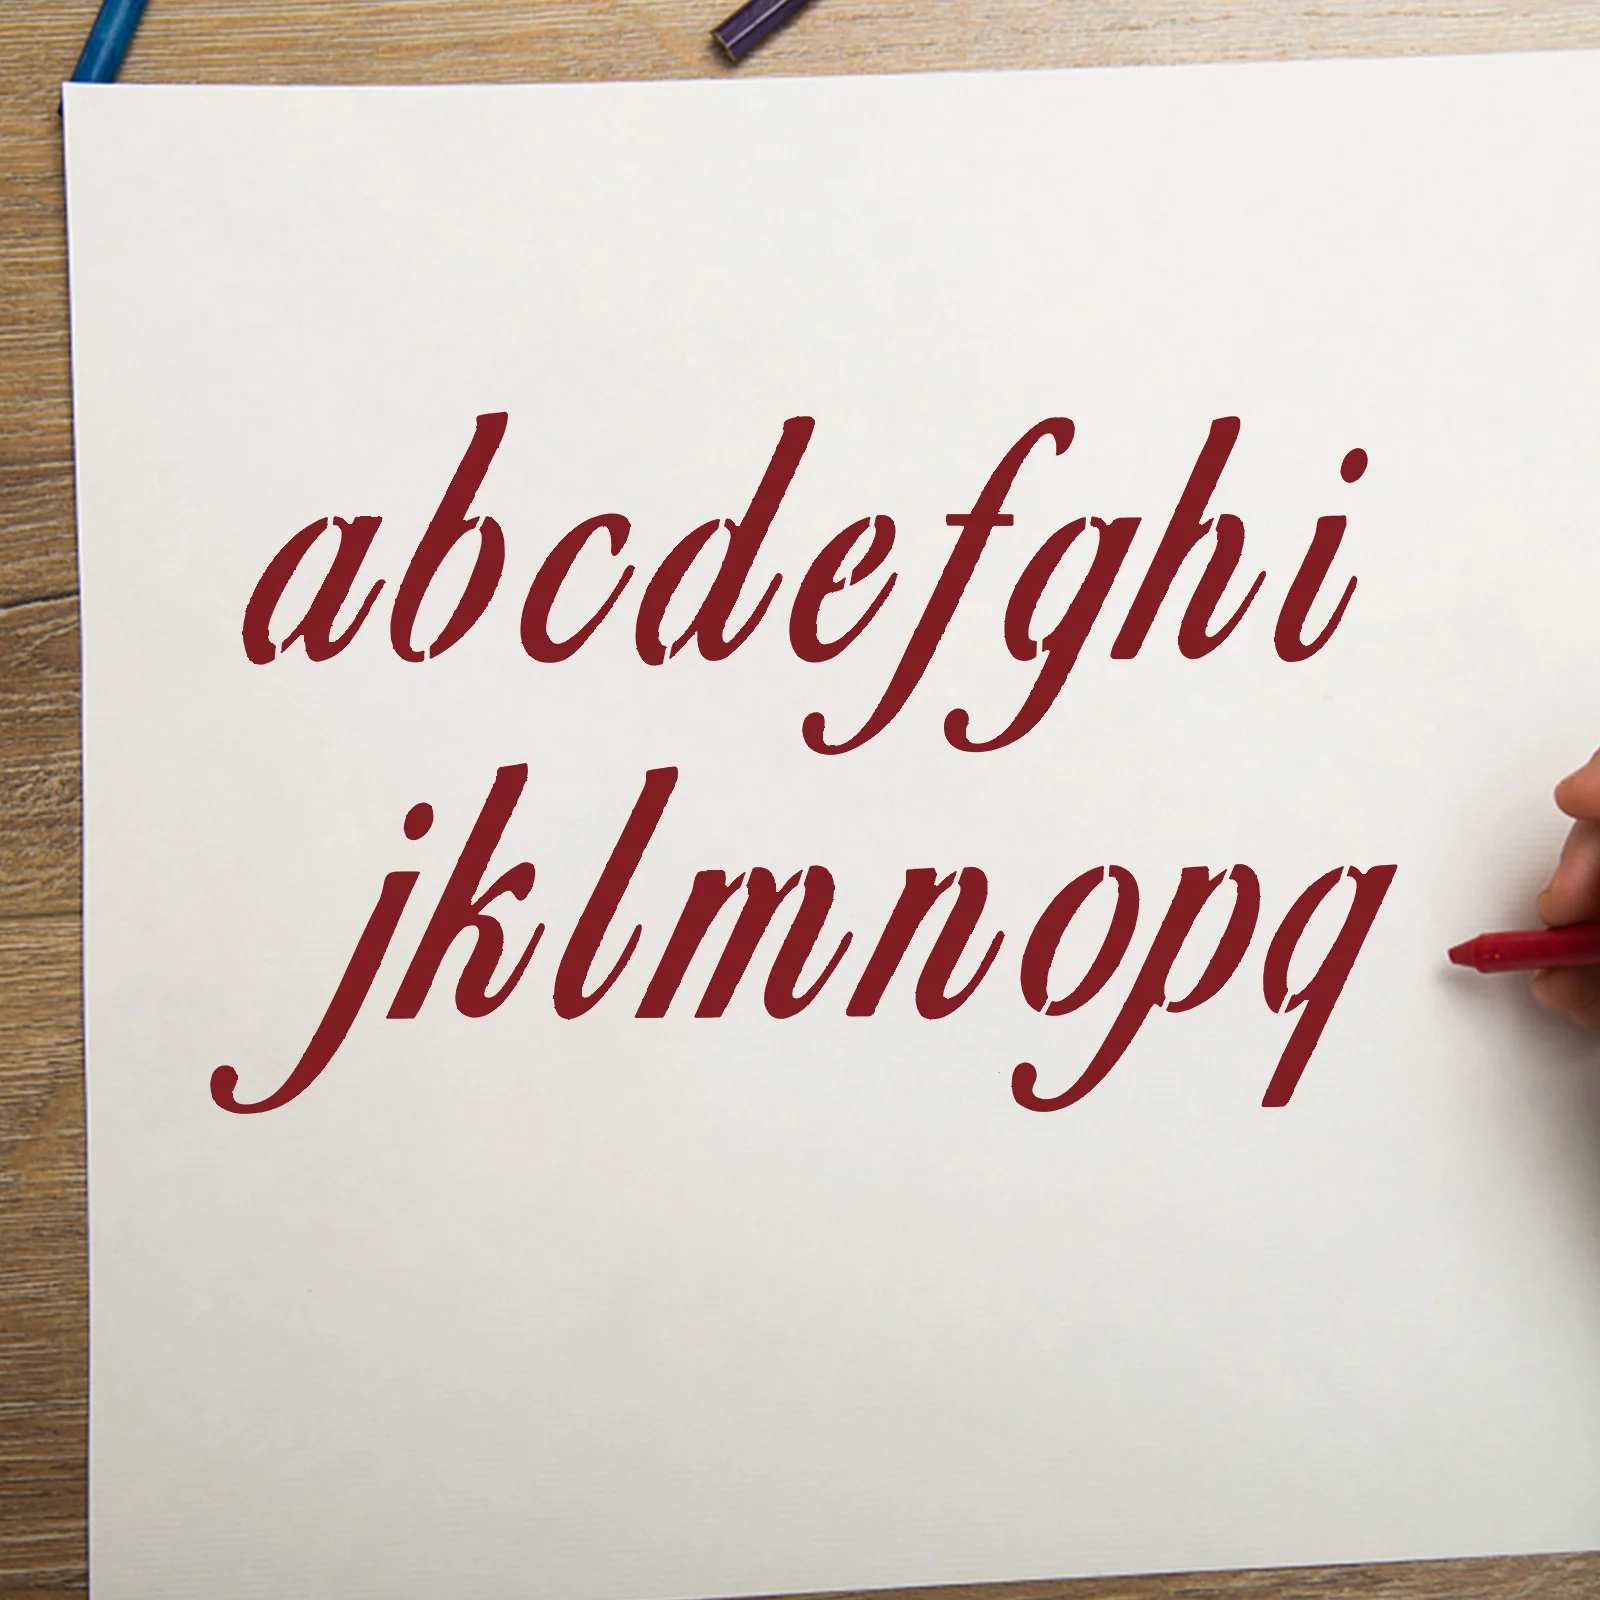 abcdefghi
jklmnopq